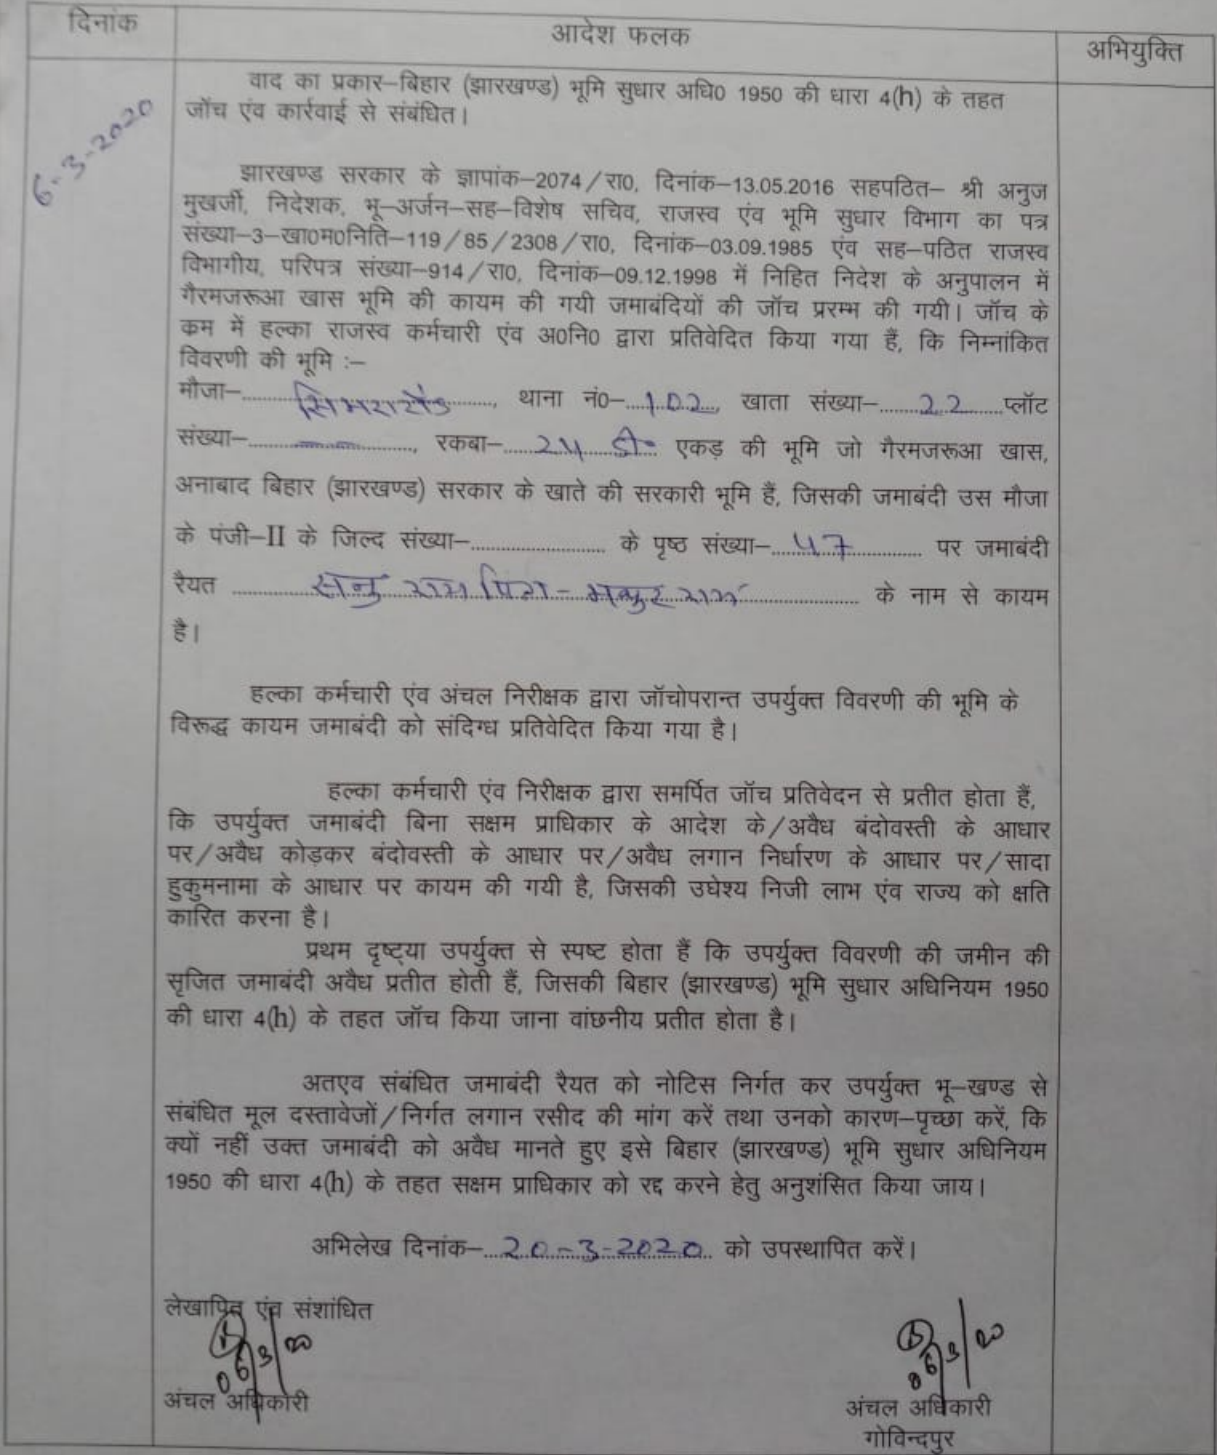 दिनांक
आदेश फलक
अभियुक्ति
6-3-2020
वाद का प्रकार–बिहार (झारखण्ड) भूमि सुधार अधि0 1950 की धारा 4(h) के तहत
जॉच एंव कार्रवाई से संबंधित।
झारखण्ड सरकार के ज्ञापांक–2074/रा0, दिनांक–13.05.2016 सहपठित– श्री अनुज
मुखर्जी, निदेशक, भू–अर्जन–सह–विशेष सचिव, राजस्व एंव भूमि सुधार विभाग का पत्र
संख्या–3–खा0म0निति–119/85/2308/रा0, दिनांक–03.09.1985 एंव सह–पठित राजस्व
विभागीय, परिपत्र संख्या–914/रा0, दिनांक–09.12.1998 में निहित निदेश के अनुपालन में
गैरमजरूआ खास भूमि की कायम की गयी जमाबंदियों की जॉच प्ररम्भ की गयी। जॉच के
कम में हल्का राजस्व कर्मचारी एंव अ0नि0 द्वारा प्रतिवेदित किया गया हैं, कि निम्नांकित
विवरणी की भूमि :–
मौजा–.................., थाना नं0–...102, खाता संख्या–......22......प्लॉट
संख्या–.................., रकबा–....24 डी0 एकड़ की भूमि जो गैरमजरूआ खास,
अनाबाद बिहार (झारखण्ड) सरकार के खाते की सरकारी भूमि हैं, जिसकी जमाबंदी उस मौजा
के पंजी–II के जिल्द संख्या–.................. के पृष्ठ संख्या–...47.......... पर जमाबंदी
रैयत .......... राम पिता – राम .......... के नाम से कायम
है।
हल्का कर्मचारी एंव अंचल निरीक्षक द्वारा जॉचोपरान्त उपर्युक्त विवरणी की भूमि के
विरूद्ध कायम जमाबंदी को संदिग्ध प्रतिवेदित किया गया है।
हल्का कर्मचारी एंव निरीक्षक द्वारा समर्पित जॉच प्रतिवेदन से प्रतीत होता हैं,
कि उपर्युक्त जमाबंदी बिना सक्षम प्राधिकार के आदेश के/अवैध बंदोवस्ती के आधार
पर/अवैध कोड़कर बंदोवस्ती के आधार पर/अवैध लगान निर्धारण के आधार पर/सादा
हुकुमनामा के आधार पर कायम की गयी है, जिसकी उघेश्य निजी लाभ एंव राज्य को क्षति
कारित करना है।
प्रथम दृष्ट्या उपर्युक्त से स्पष्ट होता हैं कि उपर्युक्त विवरणी की जमीन की
सृजित जमाबंदी अवैध प्रतीत होती हैं, जिसकी बिहार (झारखण्ड) भूमि सुधार अधिनियम 1950
की धारा 4(h) के तहत जॉच किया जाना वांछनीय प्रतीत होता है।
अतएव संबंधित जमाबंदी रैयत को नोटिस निर्गत कर उपर्युक्त भू–खण्ड से
संबंधित मूल दस्तावेजों/निर्गत लगान रसीद की मांग करें तथा उनको कारण–पृच्छा करें, कि
क्यों नहीं उक्त जमाबंदी को अवैध मानते हुए इसे बिहार (झारखण्ड) भूमि सुधार अधिनियम
1950 की धारा 4(h) के तहत सक्षम प्राधिकार को रद्द करने हेतु अनुशंसित किया जाय।
अभिलेख दिनांक–...20-3-2020.. को उपस्थापित करें।
लेखापित एंव संशांधित
06/3/20
06/3/20
अंचल अधिकारी
अंचल अधिकारी
गोविन्दपुर